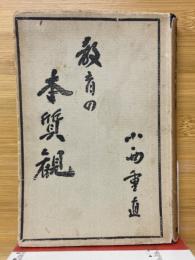 教育の
本質観
小西重直